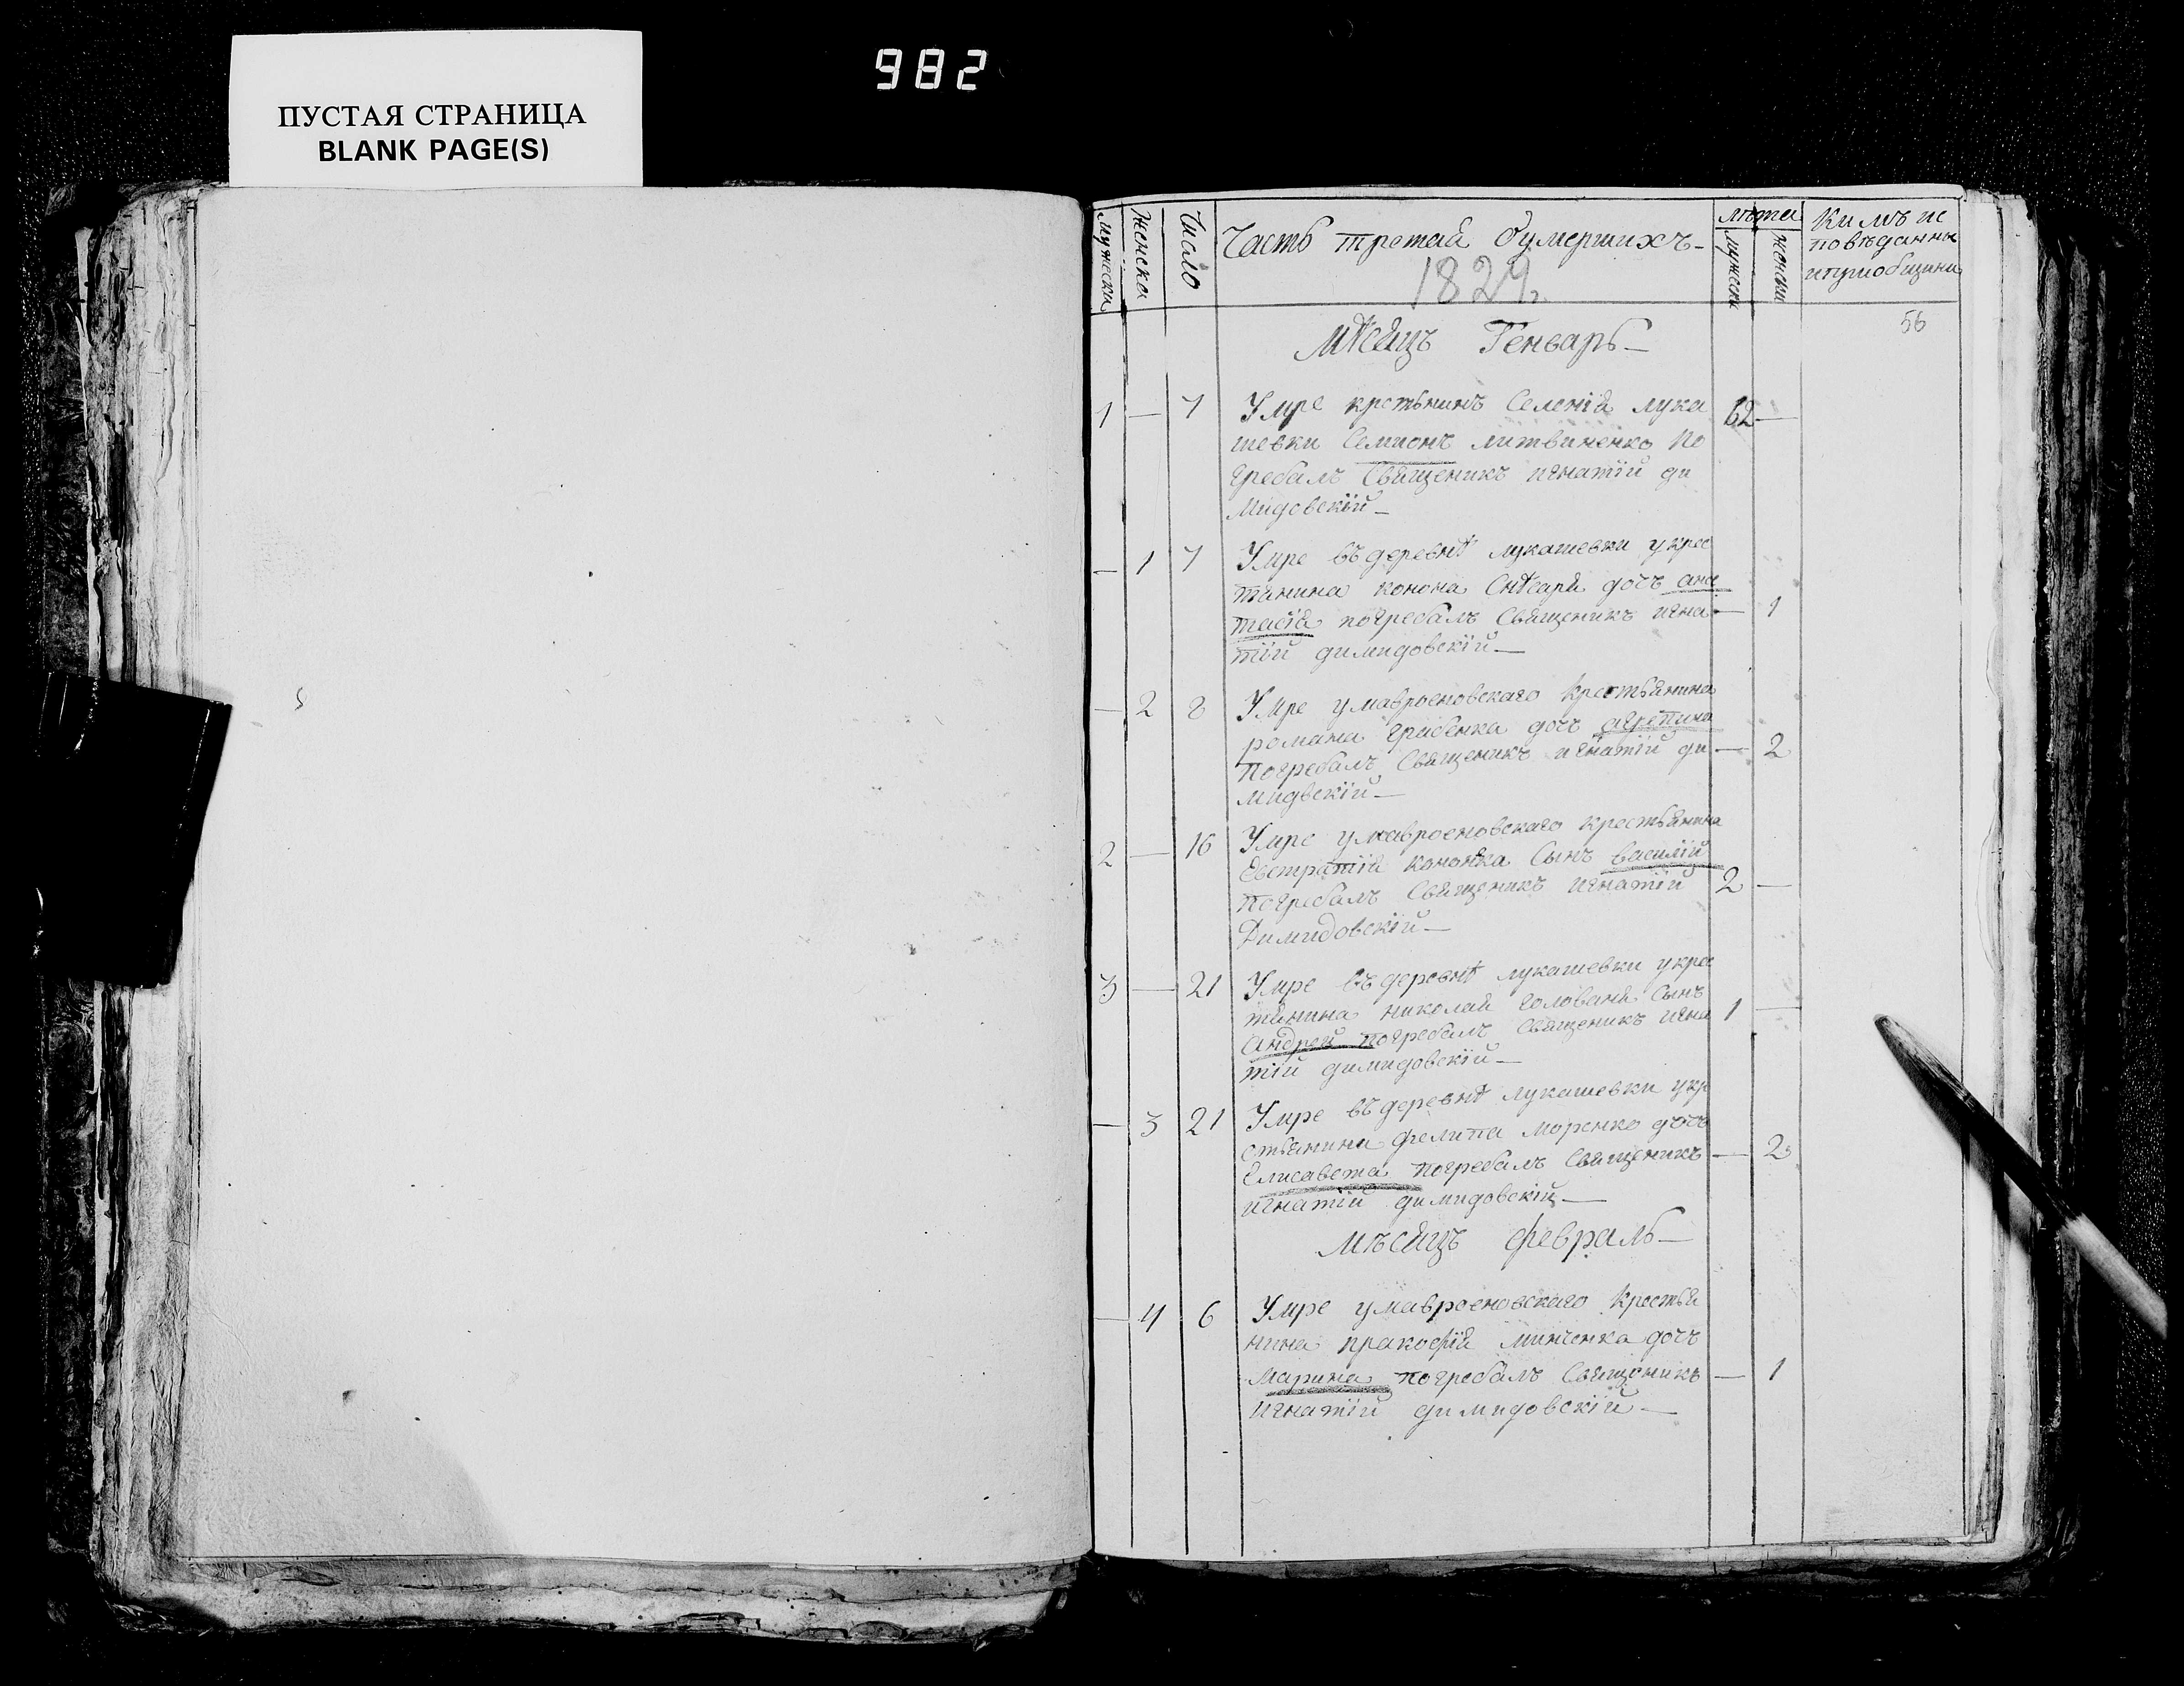 982
ПУСТАЯ СТРАНИЦА
BLANK PAGE(S)
мужески
женска
Число
Часть третая Оумершихъ
1824
лѣта
мужески
женски
Кимъ ис
повѣданны
иприобщины
56
мѣсяцъ Генварь
1 — 7 Умре крстьнинъ Селенія лука 62 —
шевки Семионъ литвиненко по
гребалъ Священикъ игнатій ди
мидовскій
— 1 7 Умре въ деревнѣ лукашевки укрес
тянина конона Снѣсаря дочъ анас
тасія погребалъ Священикъ игна — 1
тій димидовскій
— 2 8 Умре умавроеновскаго крестьянина
романа грабенка дочъ агрепина
погребалъ Священикъ игнатій ди — 2
мидвскій
2 — 16 Умре умавроеновскаго крестьянина
Евстратія кононка Сынъ василій
погребалъ Священикъ игнатій 2 —
Димидовскій
3 — 21 Умре въ деревнѣ лукашевки укрес
тянина николая голованя Сынъ
андрей погребалъ Священикъ игна 1 —
тій димидовскій
— 3 21 Умре въ деревнѣ лукашевки укре
стьянина филипа моренко дочъ
Елисавета погребалъ Священикъ — 2
игнатій димидовскій
мѣсяцъ февраль
— 4 6 Умре умавроеновскаго крестья
нина пракофія минченка дочъ
марина погребалъ Священикъ — 1
игнатій димидовскій